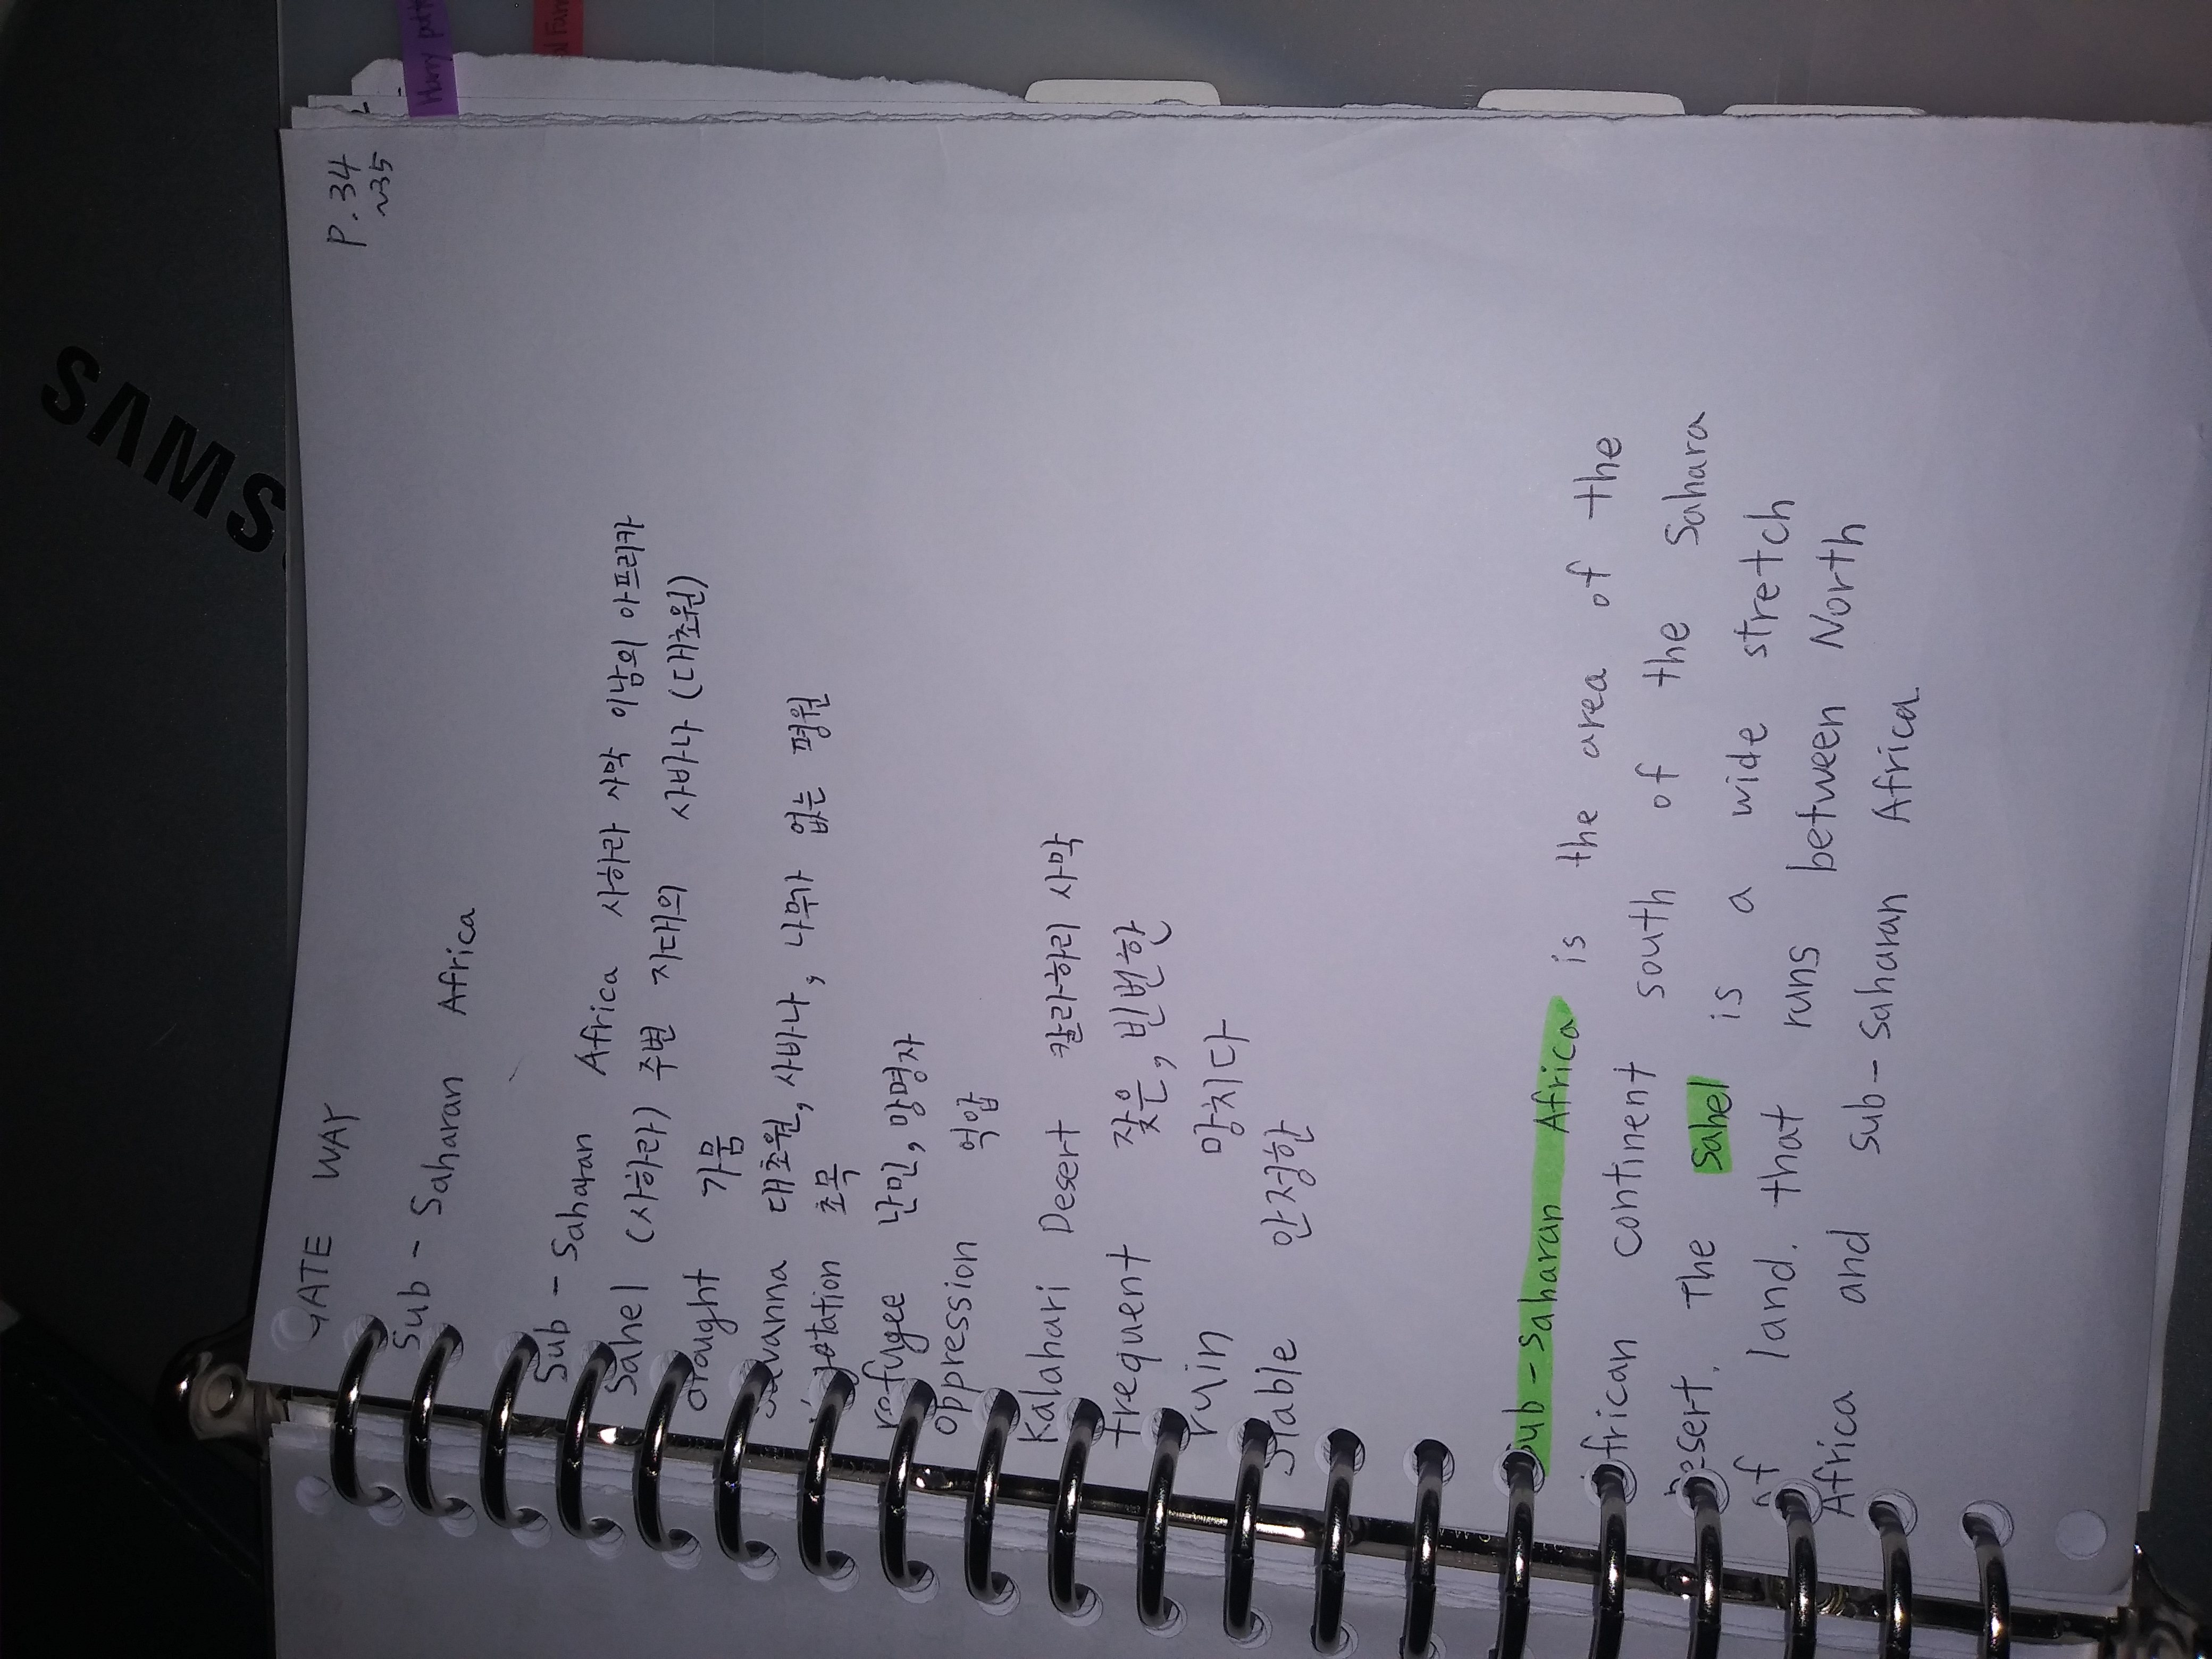 SAMS
Harry
P.34
~35
GATE WAY
Sub - Saharan Africa
Sub - Saharan Africa 사하라 사막 이남의 아프리카
Sahel (사하라) 주변 지대의 사바나 (대초원)
drought 가뭄
savanna 대초원, 사바나, 나무가 없는 평원
vegetation 초목
refugee 난민, 망명자
oppression 억압
Kalahari Desert 칼라하리 사막
frequent 잦은, 빈번한
ruin 망치다
stable 안정한
Sub - Saharan Africa is the area of the
African continent south of the Sahara
Desert. The Sahel is a wide stretch
of land. that runs between North
Africa and sub - Saharan Africa